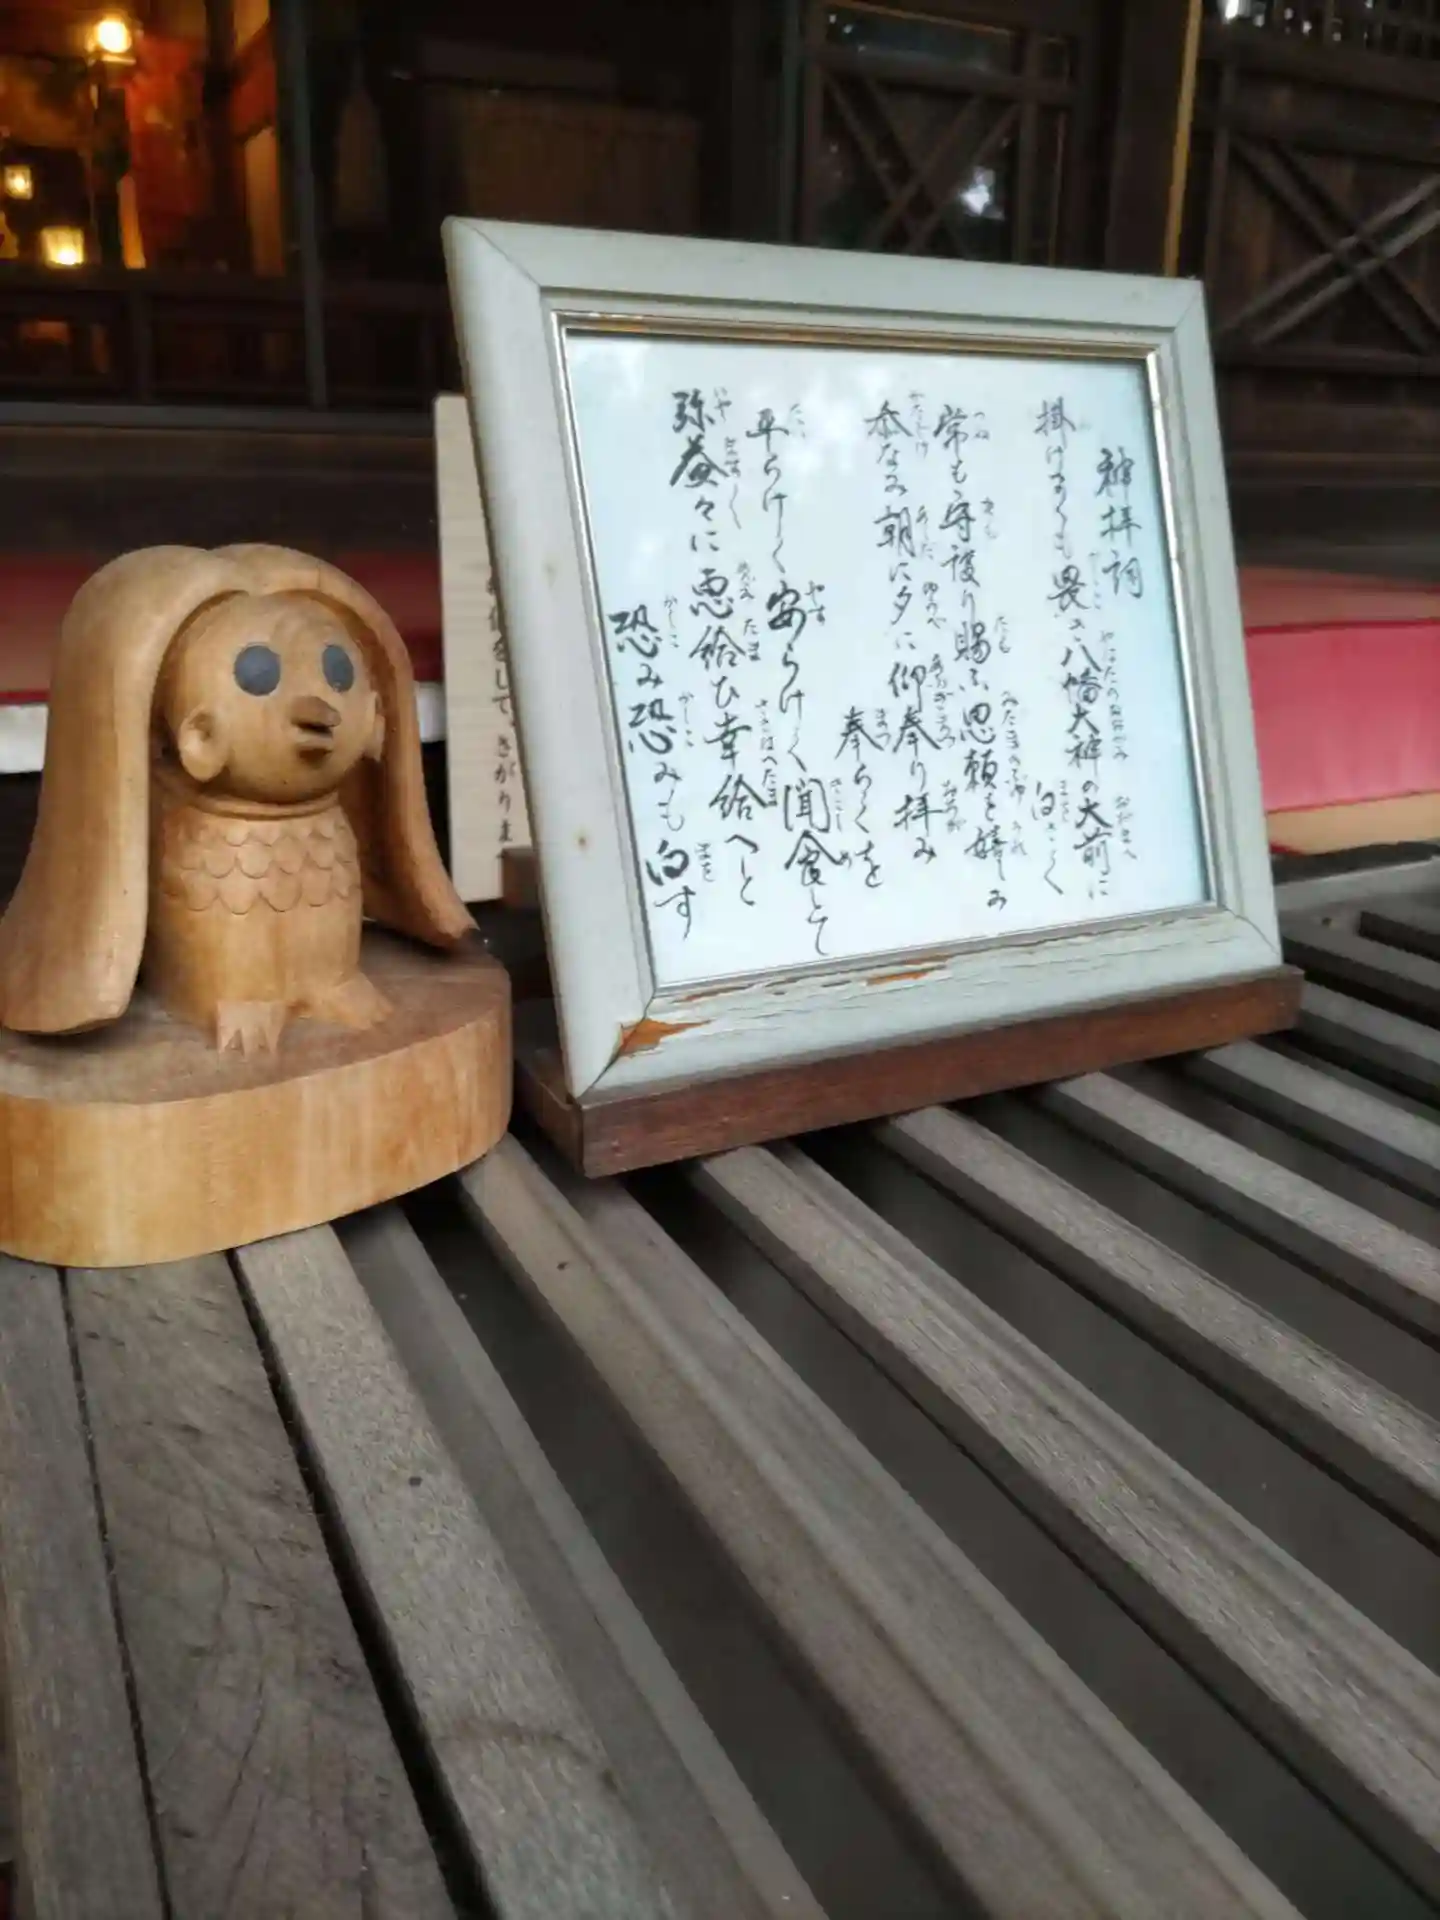 神拝詞
掛けまくも畏き八幡大神の大前に
白さく
常も守護り賜ふ恩頼を嬉しみ
忝なみ朝に夕に仰奉り拝み
奉らくを
平らけく安らけく聞食して
弥益々に恵給ひ幸給へと
恐み恐みも白す
して、さがりま